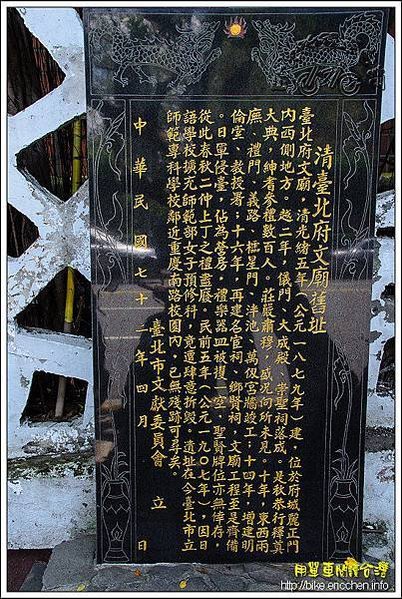 清臺北府文廟舊址
臺北府文廟，清光緒五年（公元一八七九年）建，位於府城麗正門
內西側地方。越二年，儀門、大成殿、崇聖祠落成。是秋恭行釋奠
大典，紳耆參禮數百人。莊嚴肅穆，感況向所未見。十年，東西兩
廡、禮門、義路、櫺星門、泮池、萬仞宮牆竣工。十四年，增建明
倫堂、教授署；十六年，再建名宦祠、鄉賢祠，文廟工程至是齊備
。日軍侵臺，佔為營房，禮樂器皿被損一空，聖賢牌位亦無倖存，
從此春秋二仲上丁之禮盡廢。民前五年（公元一九〇七年），因日
語學校擴充師範部女子預修科，竟遭肆意折毀。遺址在今臺北市立
師範專科學校鄰近重慶南路校園內，已無殘跡可尋矣。
臺北市文獻委員會 立
中華民國七十二年四月 日
用單車 台灣
http://bike.ericchen.info